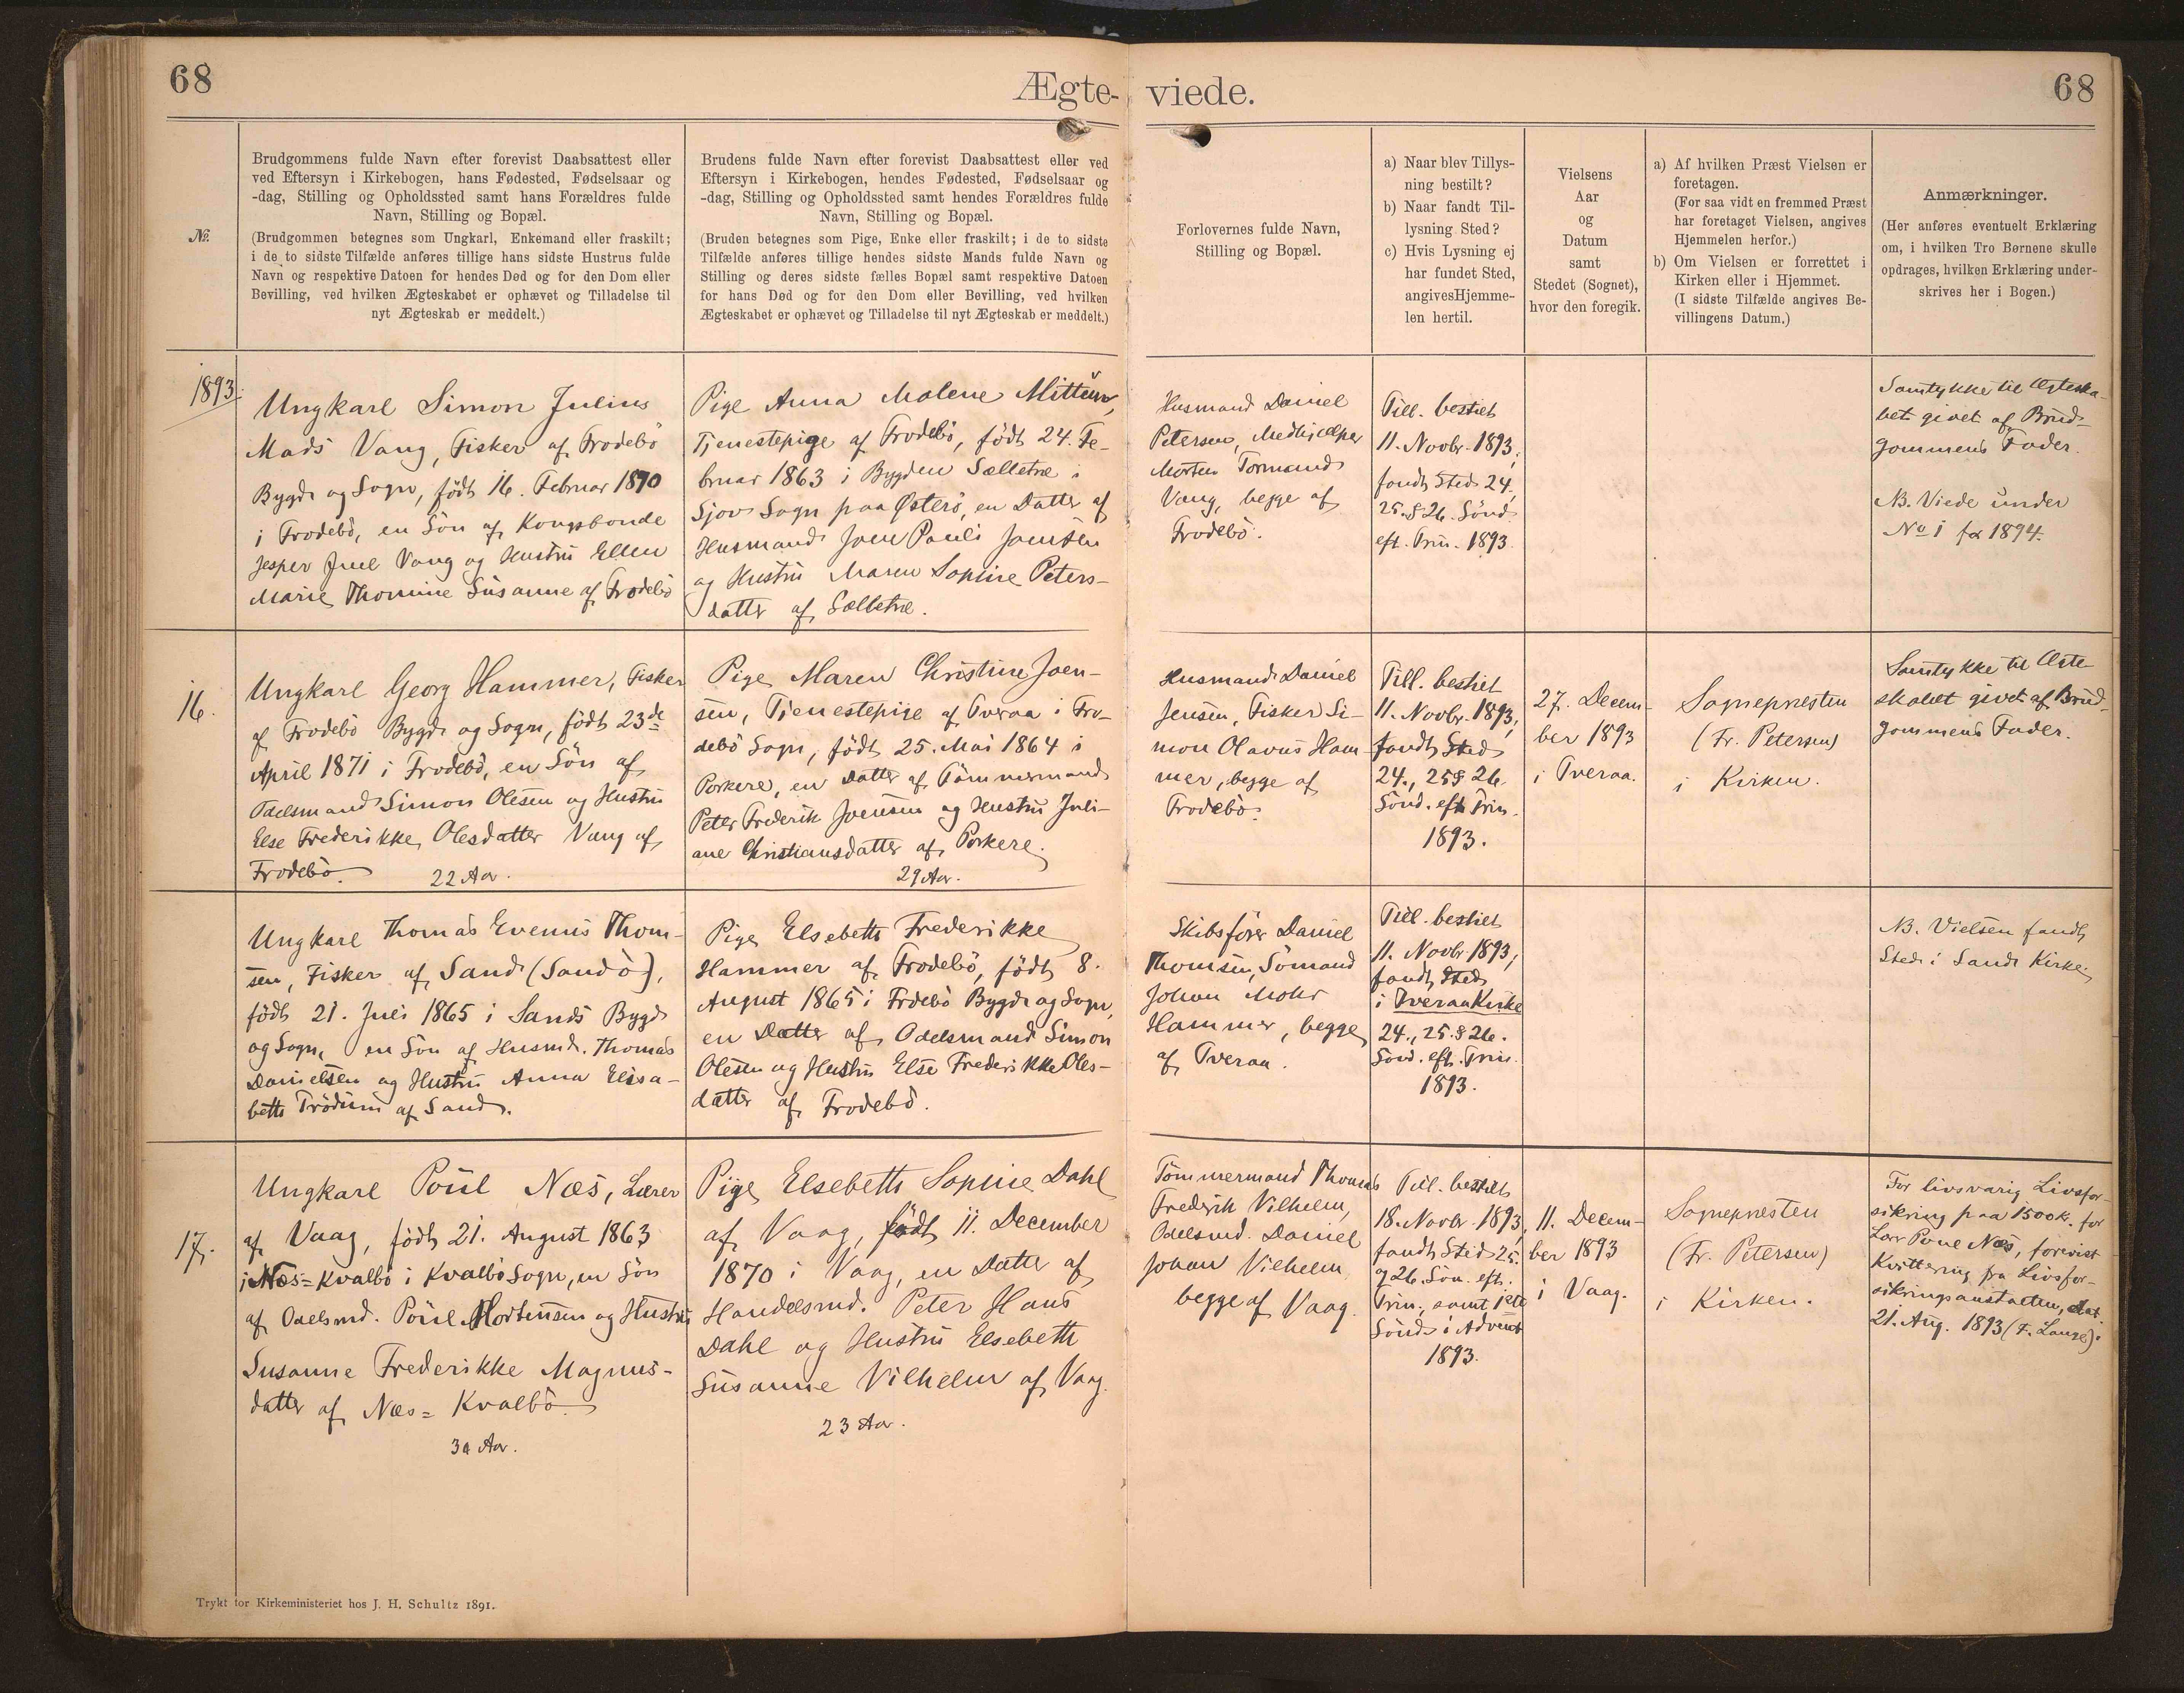 68
Ægte-
viede.
68
№
Brudgommens fulde Navn efter forevist Daabsattest eller
ved Eftersyn i Kirkebogen, hans Fødested, Fødselsaar og
-dag, Stilling og Opholdssted samt hans Forældres fulde
Navn, Stilling og Bopæl.
(Brudgommen betegnes som Ungkarl, Enkemand eller fraskilt;
i de to sidste Tilfælde anføres tillige hans sidste Hustrus fulde
Navn og respektive Datoen for hendes Død og for den Dom eller
Bevilling, ved hvilken Ægteskabet er ophævet og Tilladelse til
nyt Ægteskab er meddelt.)
Brudens fulde Navn efter forevist Daabsattest eller ved
Eftersyn i Kirkebogen, hendes Fødested, Fødselsaar og
-dag, Stilling og Opholdssted samt hendes Forældres fulde
Navn, Stilling og Bopæl.
(Bruden betegnes som Pige, Enke eller fraskilt; i de to sidste
Tilfælde anføres tillige hendes sidste Mands fulde Navn og
Stilling og deres sidste fælles Bopæl samt respektive Datoen
for hans Død og for den Dom eller Bevilling, ved hvilken
Ægteskabet er ophævet og Tilladelse til nyt Ægteskab er meddelt.)
Forlovernes fulde Navn,
Stilling og Bopæl.
a) Naar blev Tillys-
ning bestilt?
b) Naar fandt Til-
lysning Sted?
c) Hvis Lysning ej
har fundet Sted,
angives Hjemme-
len hertil.
Vielsens
Aar
og
Datum
samt
Stedet (Sognet),
hvor den foregik.
a) Af hvilken Præst Vielsen er
foretagen.
(For saa vidt en fremmed Præst
har foretaget Vielsen, angives
Hjemmelen herfor.)
b) Om Vielsen er forrettet i
Kirken eller i Hjemmet.
(I sidste Tilfælde angives Be-
villingens Datum.)
Anmærkninger.
(Her anføres eventuelt Erklæring
om, i hvilken Tro Børnene skulle
opdrages, hvilken Erklæring under-
skrives her i Bogen.)
1893.
Ungkarl Simon Julius
Mads Vang, Fisker af Frodebö
Bygd og Sogn, födt 16. Februar 1870
i Frodebö, en Sön af Kongsbonde
Jesper Juul Vang og Hustru Ellen
Marie Thomine Susanne af Frodebö
Pige Anna Malene Mittün,
Tjenestepige af Frodebö, födt 24. Fe-
bruar 1863 i Bygden Selletræ i
Sjov Sogn paa Østerö, en Datter af
Husmand Joen Pauli Joensen
og Hustru Maren Sophie Peters-
datter af Selletræ.
Husmand Daniel
Petersen, Medhjælper
Morten Tormand
Vang, begge af
Frodebö.
Till. bestilt
11. Novbr. 1893;
fandt Sted 24,
25. & 26. Sönd.
eft. Trin. 1893.
Samtykke til Ægteska-
bet givet af Brud-
gommens Fader.
NB. Viede under
No 1 for 1894.
16.
Ungkarl Georg Hammer, Fisker
af Frodebö Bygd og Sogn, födt 23de
April 1871 i Frodebö, en Sön af
Odelsmand Simon Olesen og Hustru
Else Frederikke Olesdatter Vang af
Frodebö.
22 Aar.
Pige Maren Christine Joen-
sen, Tjenestepige af Tveraa i Fro-
debö Sogn, födt 25. Mai 1864 i
Porkere, en Datter af Tömmermand
Peter Frederik Joensen og Hustru Juli-
ane Christiansdatter af Porkere.
29 Aar.
Husmand Daniel
Jensen, Fisker Si-
mon Olavus Ham
mer, begge af
Frodebö.
Till. bestilt
11. Novbr. 1893;
fandt Sted
24., 25 & 26.
Sönd. eft Trin.
1893.
27. Decem-
ber 1893
i Tveraa.
Sognepræsten
(Fr. Petersen)
i Kirken.
Samtykke til Ægte
skabet givet af Brud-
gommens Fader.
Ungkarl Thomas Evenus Thom-
sen, Fisker af Sand (Sandö),
födt 21. Juli 1865 i Sands Bygd
og Sogn, en Sön af Husmd. Thomas
Danielsen og Hustru Anna Elisa-
beth Trödum af Sand.
Pige Elsebeth Frederikke
Hammer af Frodebö, födt 8.
August 1865 i Frdebö Bygd og Sogn,
en Datter af Odelsmand Simon
Olesen og Hustru Else Frederikke Oles-
datter af Frodebö.
Skibsförer Daniel
Thomsen, Sömand
Johan Mohr
Hammer, begge
af Tveraa.
Till. bestilt
11. Novbr 1893;
fandt Sted
i Tveraa Kirke
24., 25. & 26.
Sönd. eft. Trin.
1893.
NB. Vielsen fandt
Sted i Sands Kirke.
17.
Ungkarl Poul Næs, Lærer
af Vaag, födt 21. August 1863
i Næs=Kvalbö i Kvalbö Sogn, en Sön
af Odelsmd. Poul Mortensen og Hustru
Susanne Frederikke Magnus-
datter af Næs=Kvalbö.
30 Aar.
Pige Elsebeth Sophie Dahl
af Vaag, födt 11. December
1870 i Vaag, en Datter af
Handelsmd. Peter Hans
Dahl og Hustru Elsebeth
Susanne Vilhelm af Vaag.
23 Aar.
Tömmermand Thomas
Frederik Vilhelm,
Odelsmd. Daniel
Johan Vilhelm
begge af Vaag.
Till. bestilt
18. Novbr. 1893;
fandt Sted 25.
og 26. Sön. eft.
Trin, samt 1ste
Sönd. i Advent
1893.
11. Decem-
ber 1893
i Vaag.
Sognepræsten
(Fr. Petersen)
i Kirken.
For livsvarig Livsfor-
sikring paa 1500 K. for
Lær Poul Næs, forevist
Kvittering fra Livsfor-
sikringsanstalten, dat.
21. Aug. 1893 (F. Lange).
Trykt for Kirkeministeriet hos J. H. Schultz 1891.